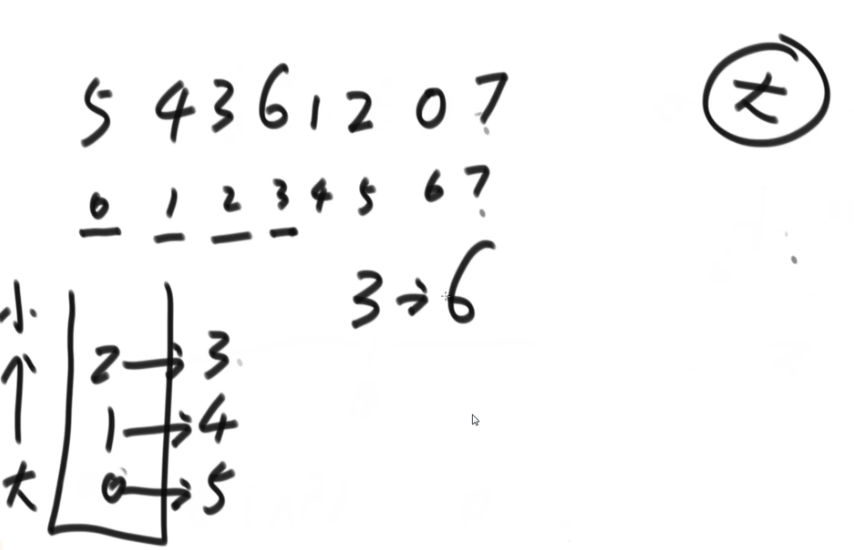 大
5 4 3 6 1 2 0 7
0 1 2 3 4 5 6 7
3 → 6
小
2 → 3
1 → 4
↑
大
0 → 5